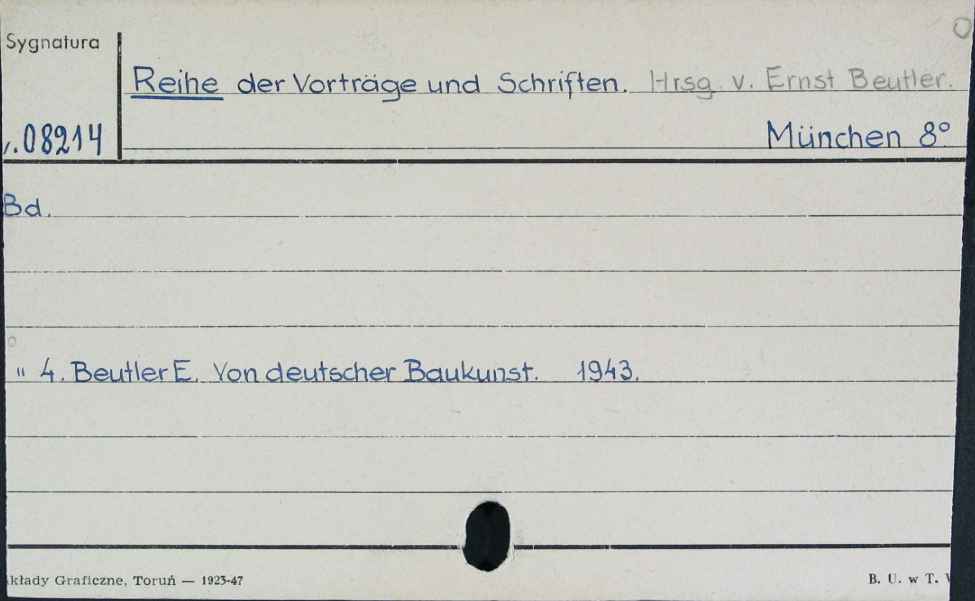 Sygnatura
Reihe der Vorträge und Schriften. Hrsg. v. Ernst Beutler.
08214
München 8°
Bd.
" 4. Beutler E. Von deutscher Baukunst. 1943.
kłady Graficzne, Toruń — 1923-47
B. U. w T.